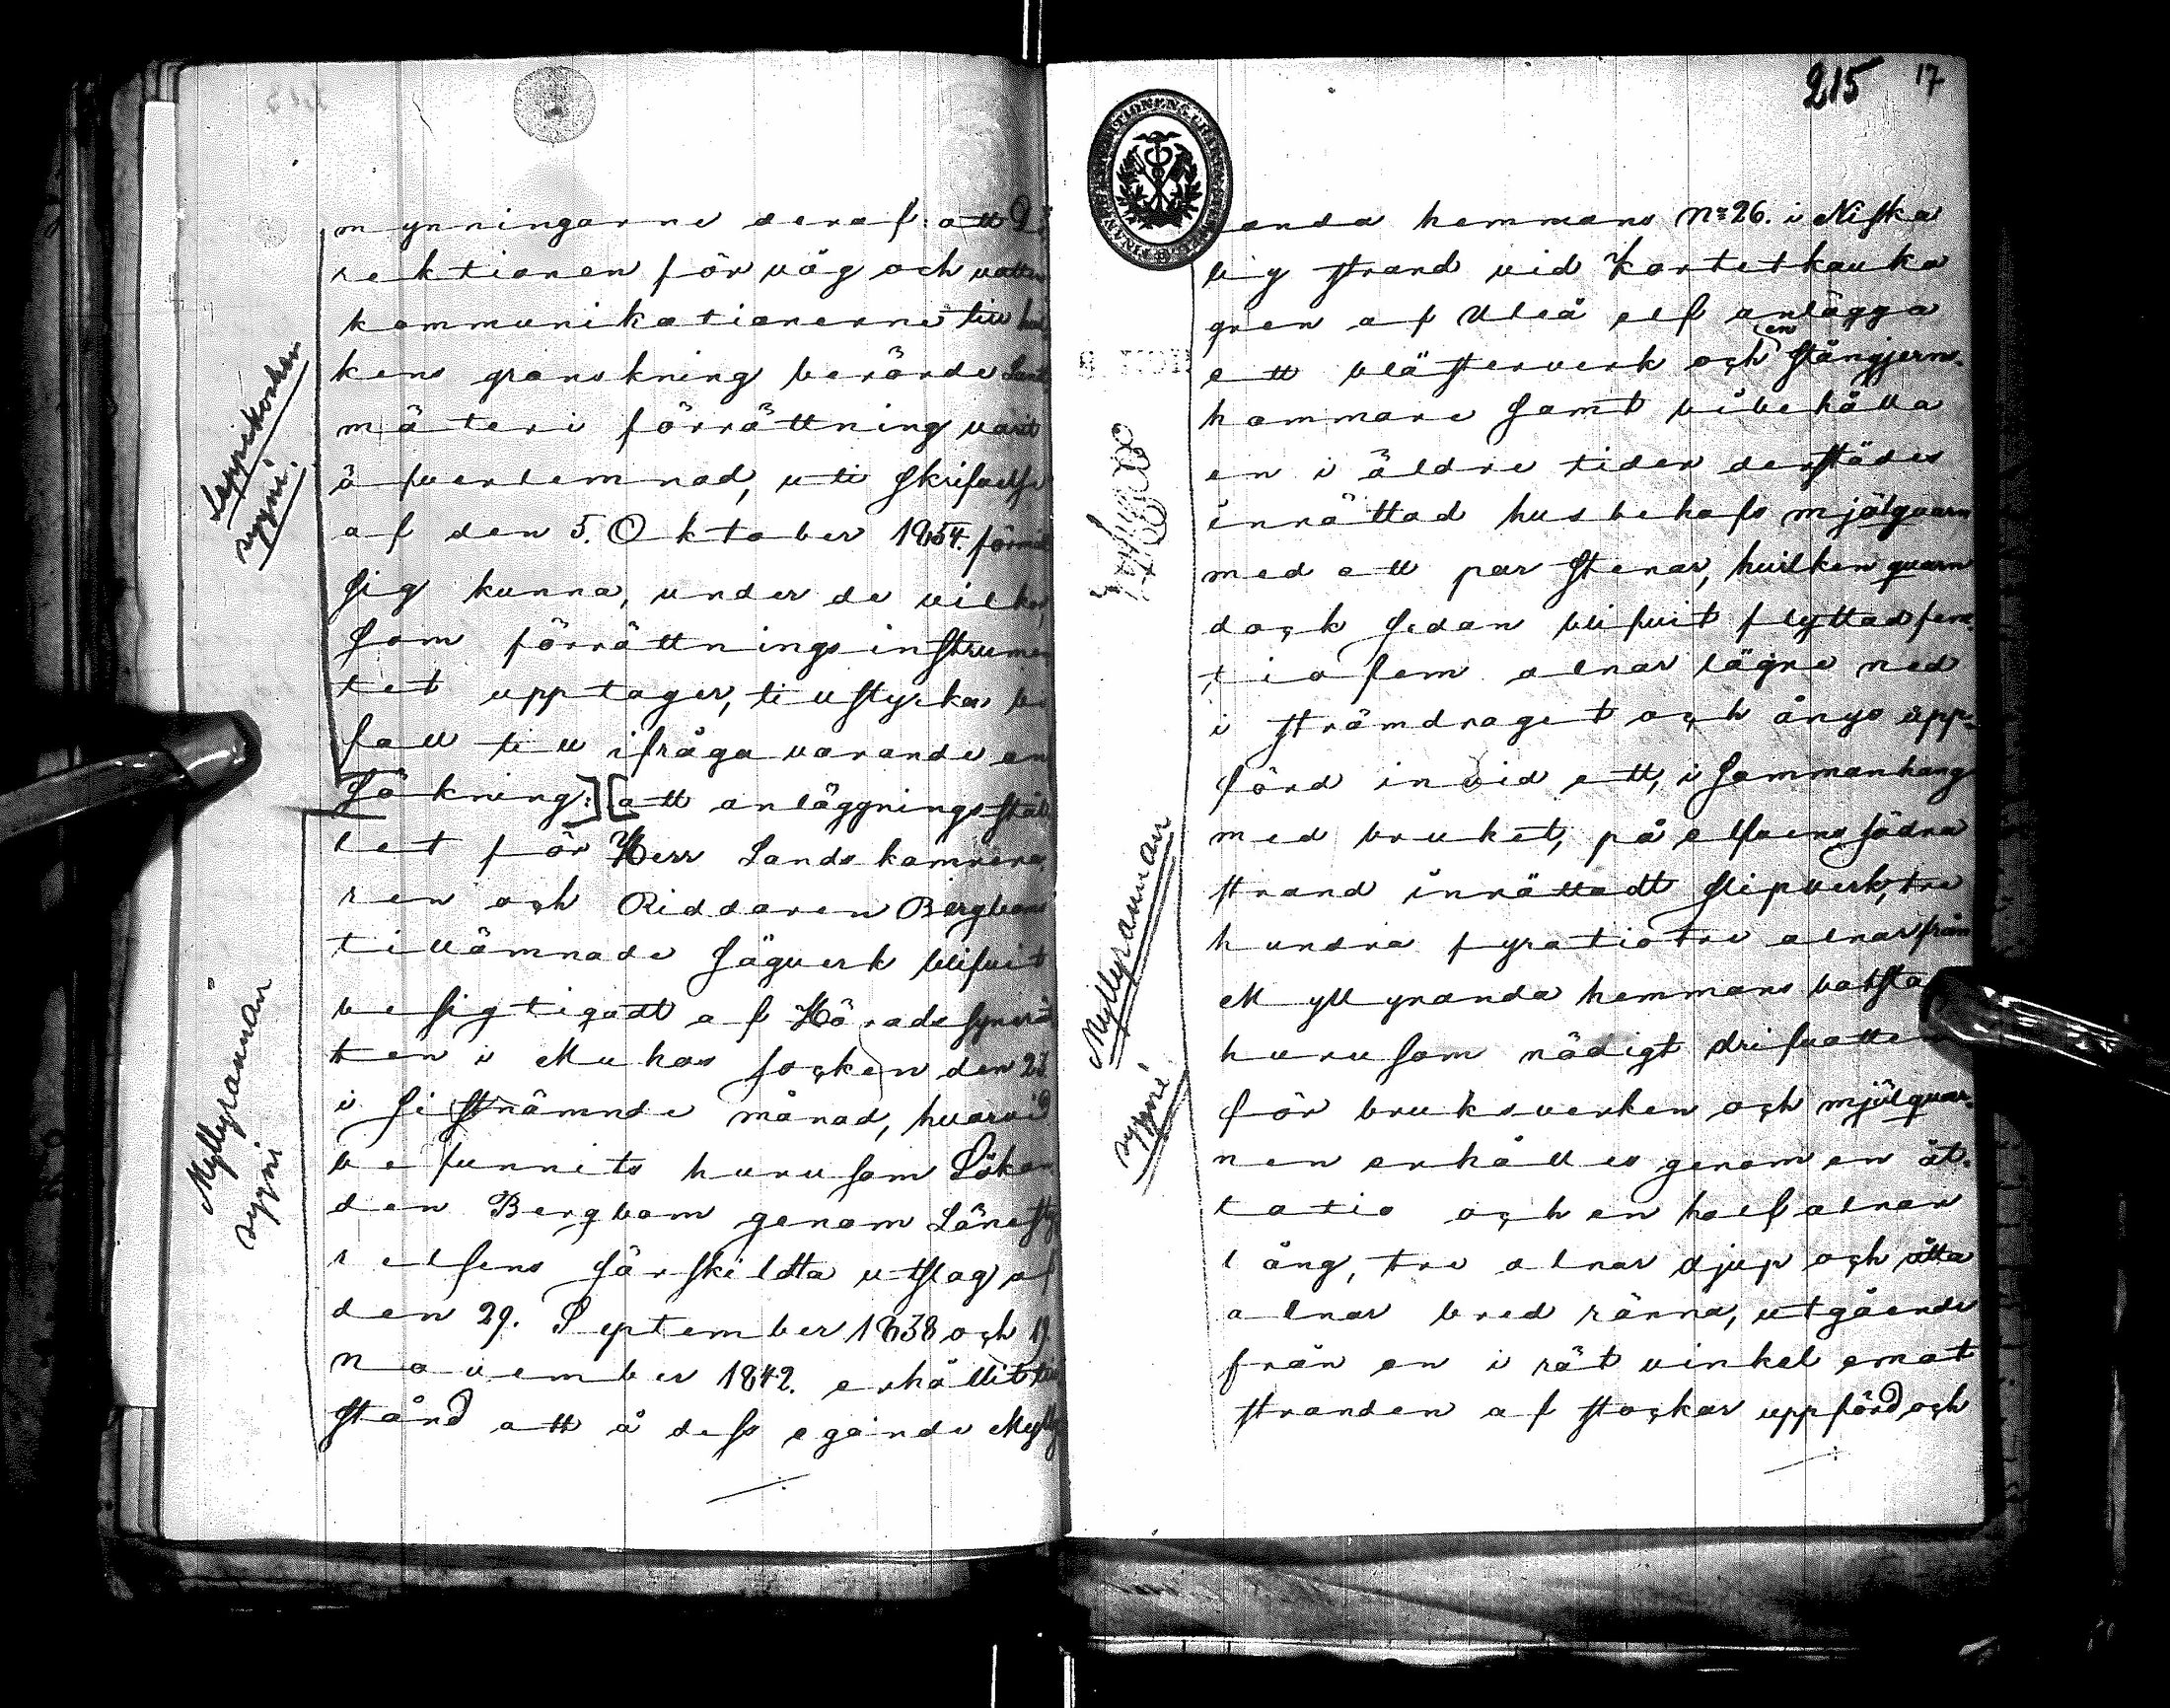 mynningarne deraf: att Di
rektionen för väg och vatten
kommunikationerne till hvil
kens granskning berörde Land
mäteri förrättning varit
öfverlemnad, uti skrifvelse
af den 5. Oktober 1854. förmält
sig kunna, under de vilkor,
som förrättningsinstrumen
tet upptager, tillstyrka bi
fall till ifråga varande an
sökning:] [att anläggningsstäl
let för Herr Landskamrera
ren och Riddaren Bergbom
tillämnade sågverk blifvit
besigtigadt af Häradssynerät
ten i Muhos socken den 23
i sistnämnde månad, hvarvid
befunnits hurusom Sökan
den Bergbom genom Länesty
relsens särskildta utslag af
den 29. September 1838 och 19
November 1842. erhållit till
stånd att å dess egande Mylly
Leppikosken
syyni.
Myllyrannan
syyni
215 17
anda hemmans No 26. i Niska
by strand vid Kortetkauka
gren af Uleå elf anlägga
ett blästerverk och en stångjerns-
hammare samt bibehålla
en i äldre tider derstädes
inrättad husbehofs mjölqvarn
med ett par stenar, hvilken qvarn
dock sedan blifvit flyttad fem-
tiofem alnar lägre ned
i strömdraget och ånyo upp-
förd invid ett, i sammanhang
med bruket, på elfvens södra
strand inrättadt slipverk, tre
hundra fyratiotre alnar från
Myllyranda hemmans båtsta
hurusom nödigt drifvatten
för bruksverken och mjölqvar-
nen erhålles genom en åt-
tatio och en half alnar
lång, tre alnar djup och åtta
alnar bred ränna, utgående
från en i rät vinkel emot
stranden af stockar uppförd och
Myllyrannan
syyni